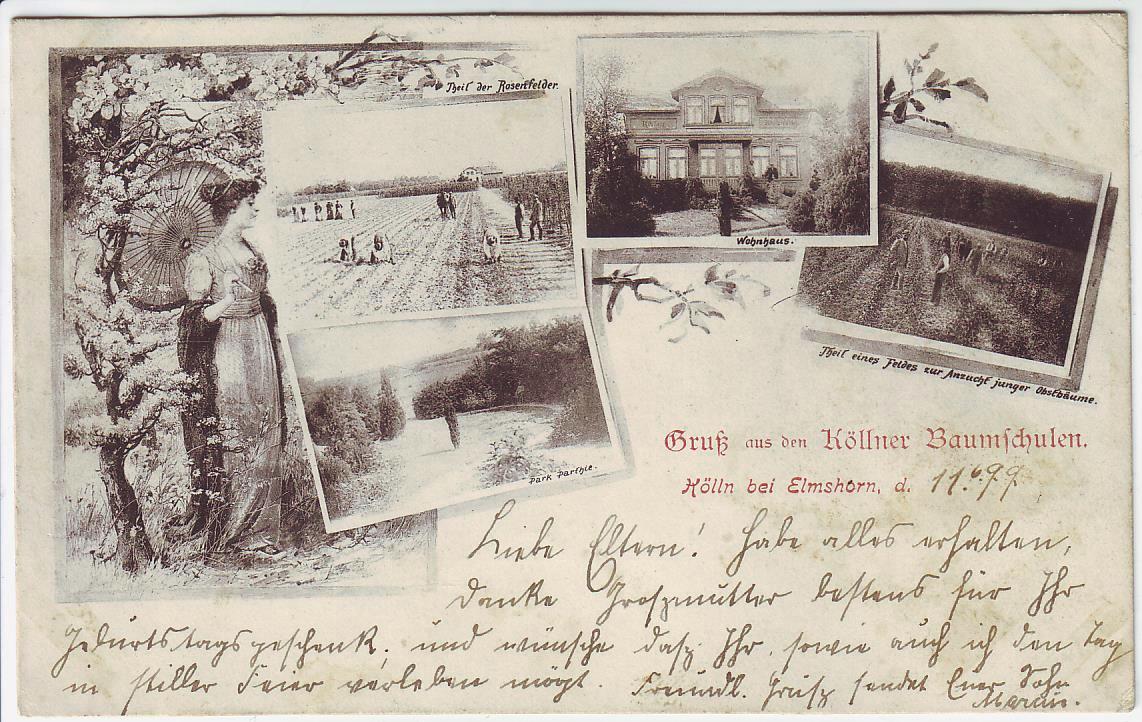 Theil der Rosenfelder.
Wohnhaus.
Theil eines Feldes zur Anzucht junger Obstbäume.
Park Parthie.
Gruß aus den Köllner Baumschulen.
Kölln bei Elmshorn, d. 11.6.99
Liebe Eltern! Habe alles erhalten,
danke Groszmutter bestens für Ihr
Geburtstagsgeschenk, und wünsche dasz Ihr, sowie auch ich den Tag
in stiller Feier verleben mögt. Freundl. Grusz sendet Euer Sohn